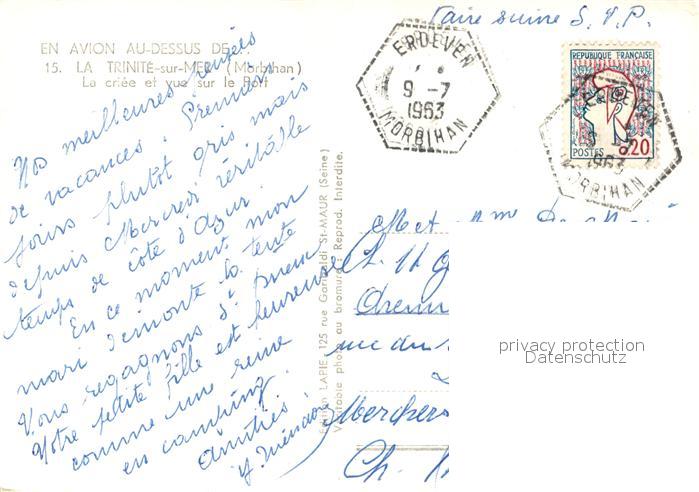 Faire suivre S.V.P.
EN AVION AU-DESSUS DE...
15. LA TRINITÉ-sur-MER (Morbihan)
La criée et vue sur le Port
ERDEVEN
9 -7
1963
MORBIHAN
REPUBLIQUE FRANÇAISE
POSTES 0,20
ERDEVEN
1963
MORBIHAN
Nos meilleures pensées
de vacances. Premiers
jours plutôt gris mais
depuis Mercredi véritable
temps de côte d'Azur.
En ce moment mon
mari démonte la tente
Vous regagnons St
Votre petite fille est heureuse
comme une reine
en camping.
Amitiés
Edition LAPIE, 125 rue Garibaldi St-MAUR (Seine)
Véritable photo au bromure. Reprod. Interdite.
M et Mme
rue du
Ch.
privacy protection
Datenschutz